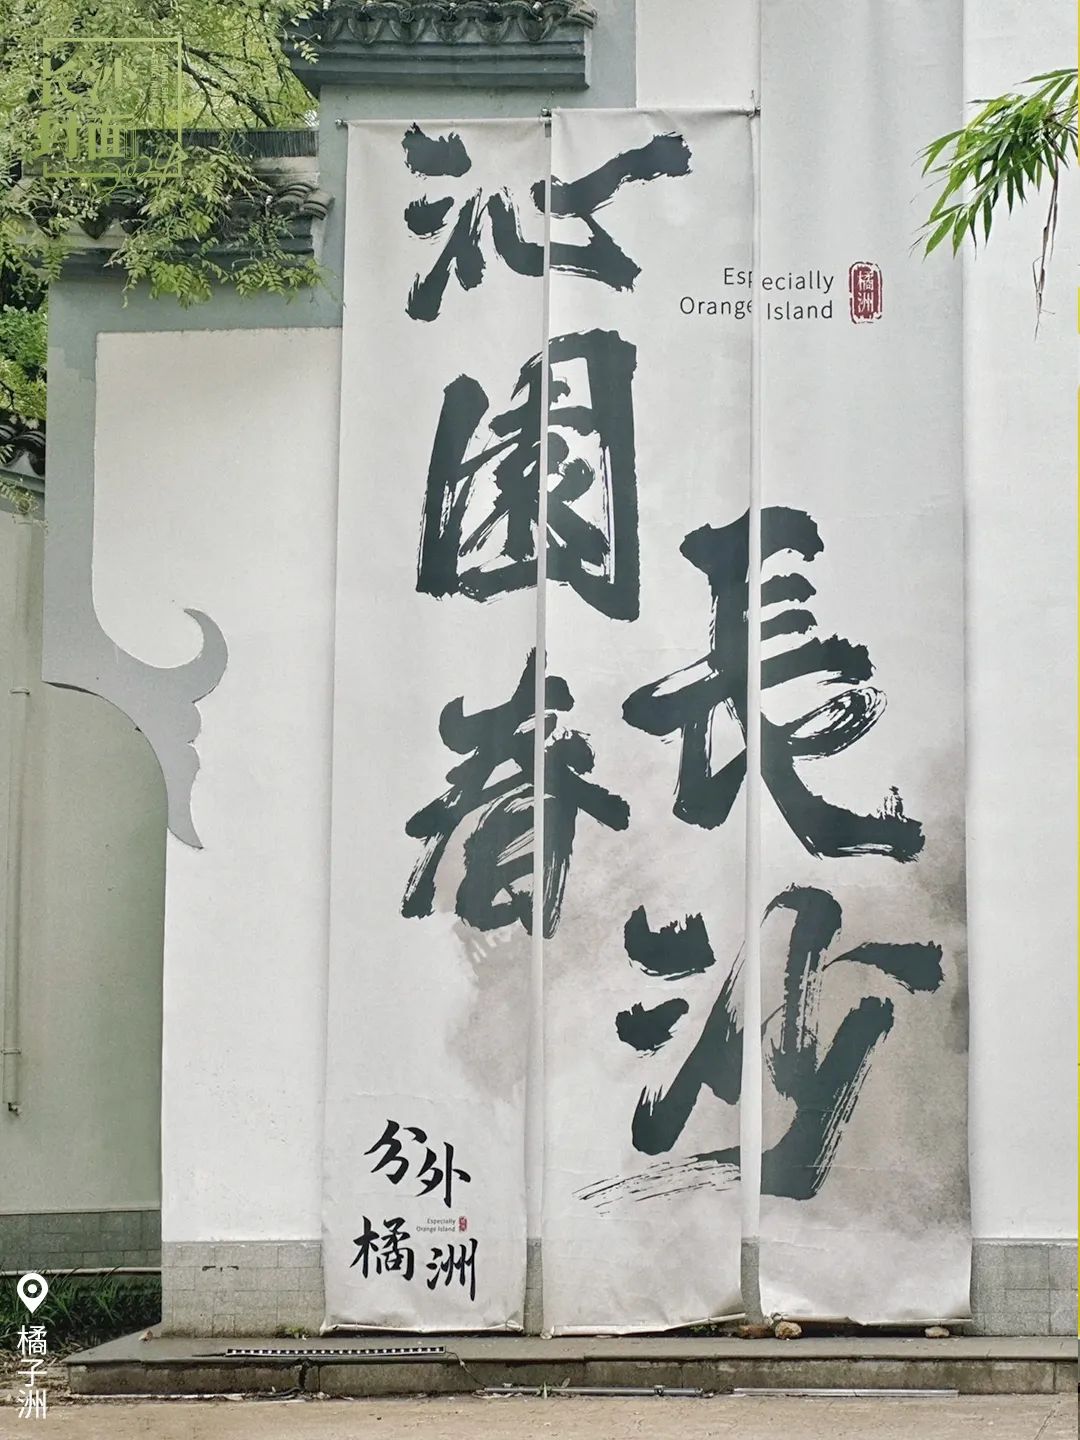 长沙
封面
2024
沁園春
長沙
Especially
Orange Island
橘洲
分外
橘洲
Especially
Orange Island
橘子洲